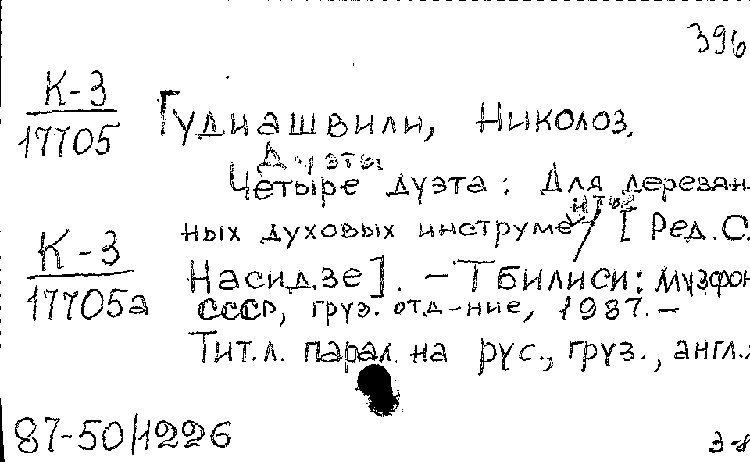 396
К-3
17705
Гудиашвили, Николоз.
Дуэты
Четыре дуэта: Для деревян-
ных духовых инструментов / [Ред. С.
К-3
17705а
Насидзе]. - Тбилиси: Музфон
СССР, груз. отд-ние, 1987. -
Тит. л. парал. на рус., груз., англ.
87-50/1226